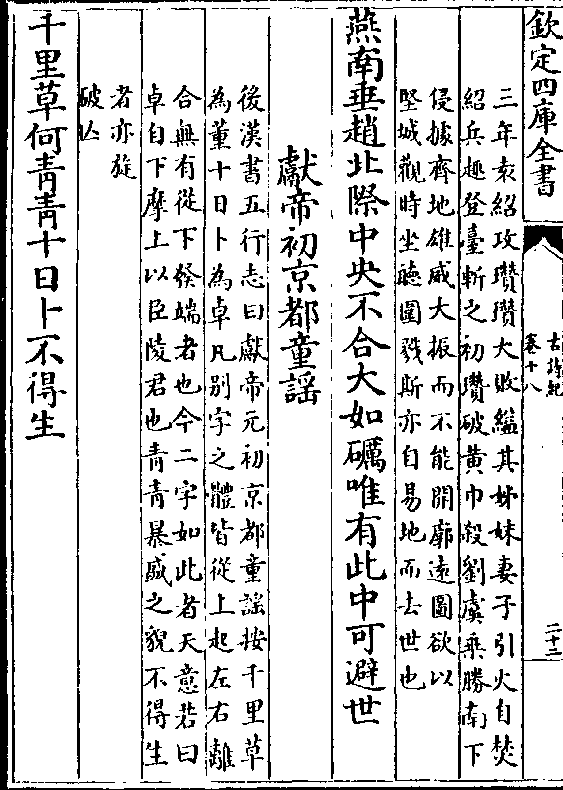 欽定四庫全書
古詩紀
卷十八
二十二
三年袁紹攻瓚瓚大敗縊其姊妹妻子引火自焚
紹兵趣登臺斬之初瓚破黃巾殺劉虞乘勝南下
侵據齊地雄威大振而不能開廓遠圖欲以
堅城觀時坐聽圍戮斯亦自易地而去世也
燕南垂趙北際中央不合大如礪唯有此中可避世
獻帝初京都童謠
後漢書五行志曰獻帝元初京都童謠按千里草
為董十日卜為卓凡别字之體皆從上起左右離
合無有從下發端者也今二字如此者天意若曰
卓自下摩上以臣陵君也青青暴盛之貌不得生
者亦旋
破亾
千里草何青青十日卜不得生